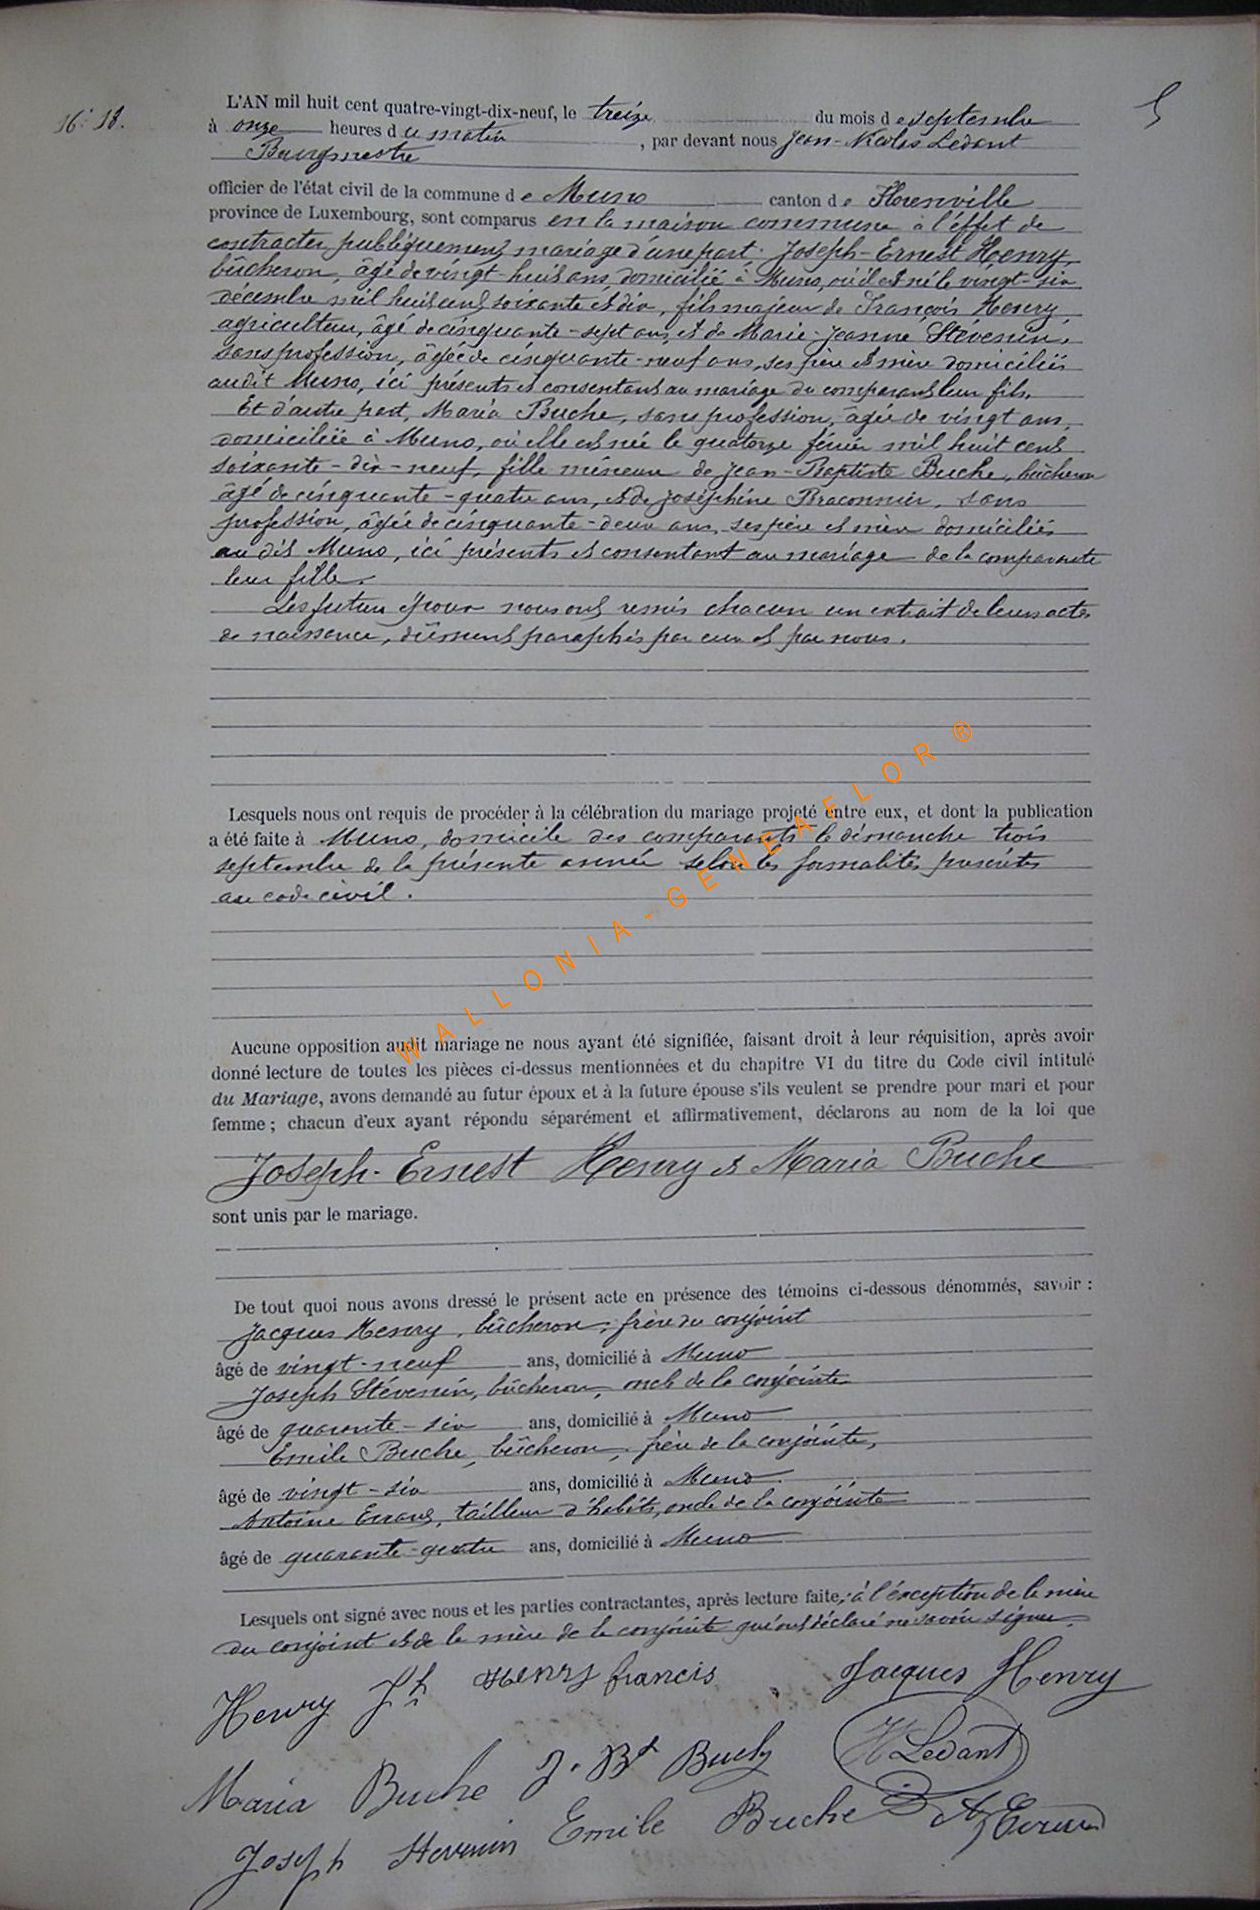 16: 18.
5
L'AN mil huit cent quatre-vingt-dix-neuf, le treize du mois de septembre
à onze heures du matin, par devant nous Jean-Nicolas Ledant
Bourgmestre
officier de l'état civil de la commune de Muno canton de Florenville
province de Luxembourg, sont comparus en la maison commune à l'effet de
contracter publiquement mariage d'une part: Joseph-Ernest Henry,
bûcheron, âgé de vingt-huit ans, domicilié à Muno, où il est né le vingt-six
décembre mil huit cent soixante et dix, fils majeur de François Henry,
agriculteur, âgé de cinquante-sept ans, et de Marie-Jeanne Stévenin,
sans profession, âgée de cinquante-neuf ans, ses père et mère domiciliés
audit Muno, ici présents et consentant au mariage du comparant leur fils.
Et d'autre part, Maria Buche, sans profession, âgée de vingt ans,
domiciliée à Muno, où elle est née le quatorze février mil huit cent
soixante-dix-neuf, fille mineure de Jean-Baptiste Buche, bûcheron
âgé de cinquante-quatre ans, et de Joséphine Braconnier, sans
profession, âgée de cinquante-deux ans, ses père et mère domiciliés
au dit Muno, ici présents et consentant au mariage de la comparante
leur fille.
Les futurs époux nous ont remis chacun un extrait de leurs actes
de naissance, dûment paraphés par eux et par nous.
Lesquels nous ont requis de procéder à la célébration du mariage projeté entre eux, et dont la publication
a été faite à Muno, domicile des comparants le dimanche trois
septembre de la présente année selon les formalités prescrites
au code civil.
WALLONIA-GENEAFLOR®
Aucune opposition audit mariage ne nous ayant été signifiée, faisant droit à leur réquisition, après avoir
donné lecture de toutes les pièces ci-dessus mentionnées et du chapitre VI du titre du Code civil intitulé
du Mariage, avons demandé au futur époux et à la future épouse s'ils veulent se prendre pour mari et pour
femme ; chacun d'eux ayant répondu séparément et affirmativement, déclarons au nom de la loi que
Joseph-Ernest Henry et Maria Buche
sont unis par le mariage.
De tout quoi nous avons dressé le présent acte en présence des témoins ci-dessous dénommés, savoir :
Jacques Henry, bûcheron, frère du conjoint
âgé de vingt-neuf ans, domicilié à Muno
Joseph Stévenin, bûcheron, oncle de la conjointe
âgé de quarante-six ans, domicilié à Muno
Emile Buche, bûcheron, frère de la conjointe,
âgé de vingt-six ans, domicilié à Muno
Antoine tailleur d'habits, oncle de la conjointe
âgé de quarante-quatre ans, domicilié à Muno
Lesquels ont signé avec nous et les parties contractantes, après lecture faite, à l'exception de la mère
du conjoint et de la mère de la conjointe qui ont déclaré ne savoir signer.
Henry Jh Henry francis Jacques Henry
Maria Buche J. Bt Buche Ledant
Joseph Stevenin Emile Buche